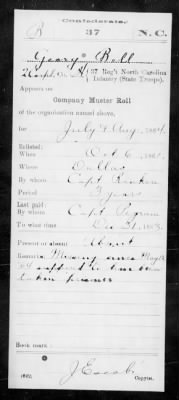 Confederate.
B 37 N.C.
Geary Bell
Corpl, Co. A, 37 Reg't North Carolina
Infantry (State Troops).
Appears on
Company Muster Roll
of the organization named above,
for July & Aug, 1864.
Enlisted:
When Oct 6, 1861.
Where
By whom Capt.
Period 3 years
Last paid:
By whom Capt. Pegram
To what time Dec 31, 1863.
Present or absent Absent
Remarks: Missing since May 12
64 supposed to have been
taken prisoner
Book mark:
(642)
Copyist.